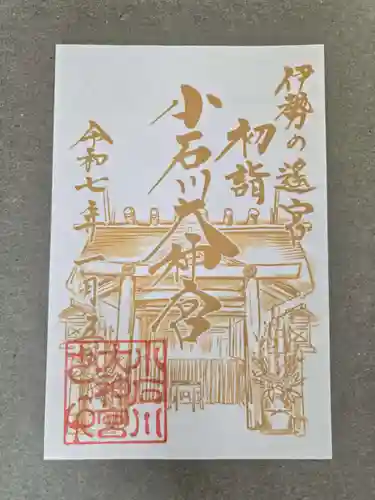 伊勢の遙宮
初詣
小石川大神宮
令和七年一月五日
小石川
大神宮